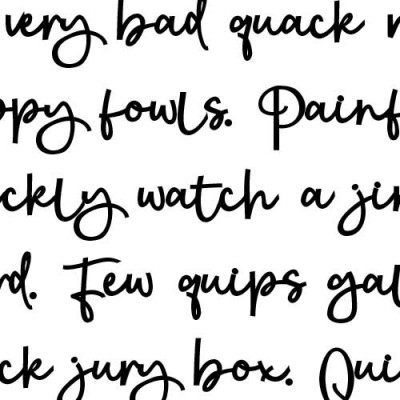 very bad quack r
ppy fowls. Painf
ckly watch a jin
rd. Few quips gal
ck jury box. Qui